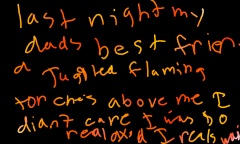 last night my
dads best frien
d Juggled flaming
torches above me I
didnt care I was so
relaxed I